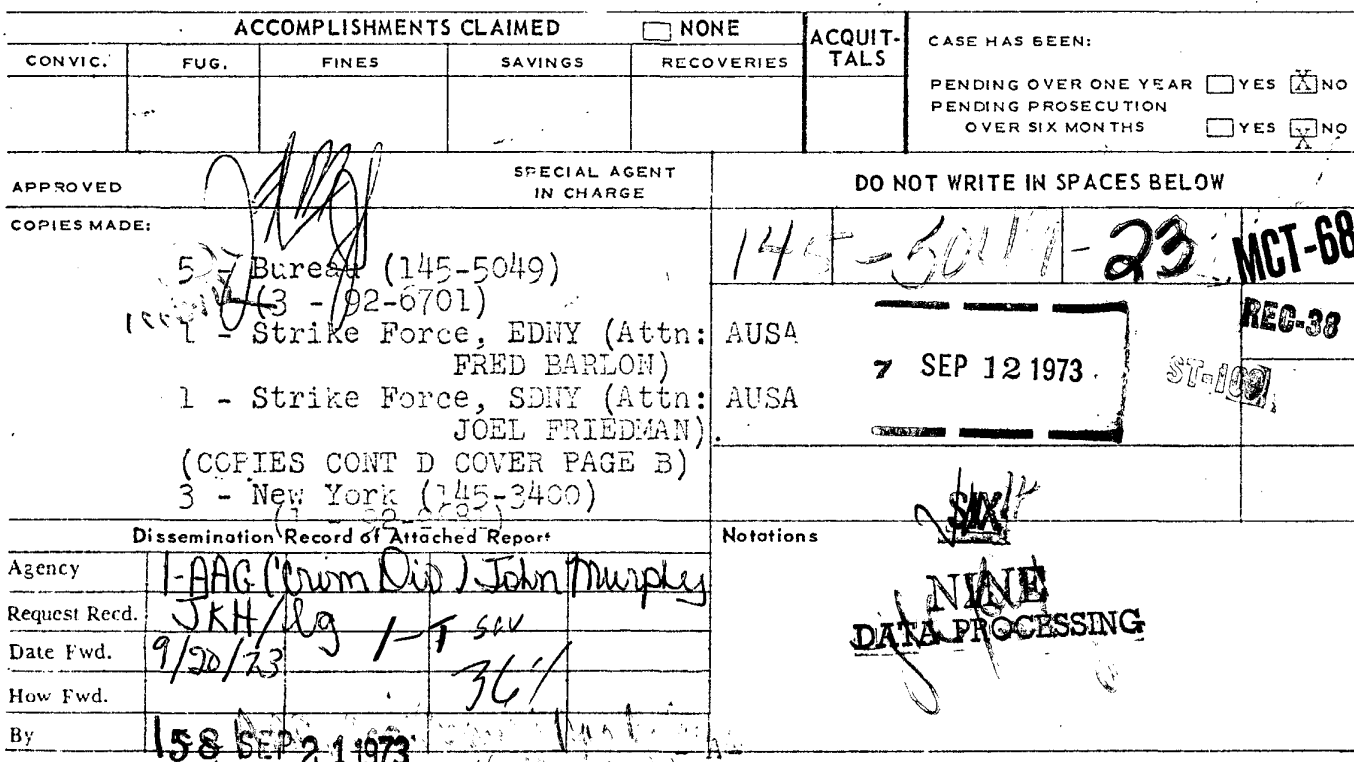 ACCOMPLISHMENTS CLAIMED NONE
ACQUIT-
TALS
CASE HAS BEEN:
CONVIC. FUG. FINES SAVINGS RECOVERIES
PENDING OVER ONE YEAR YES X NO
PENDING PROSECUTION
OVER SIX MONTHS YES X NO
APPROVED
SPECIAL AGENT
IN CHARGE
DO NOT WRITE IN SPACES BELOW
COPIES MADE:
5 - Bureau (145-5049)
(3 - 92-6701)
1 - Strike Force, EDNY (Attn: AUSA
FRED BARLOW)
1 - Strike Force, SDNY (Attn: AUSA
JOEL FRIEDMAN).
(COPIES CONT D COVER PAGE B)
3 - New York (145-3400)
145-5049-23
MCT-68
REC-38
7 SEP 12 1973
Dissemination Record of Attached Report
Notations
Agency 1-AAG (Crim Div) John Murphy
Request Recd. JKH/lg
Date Fwd. 9/20/73
How Fwd.
By
158 SEP 21 1973
SIX
NINE
DATA PROCESSING